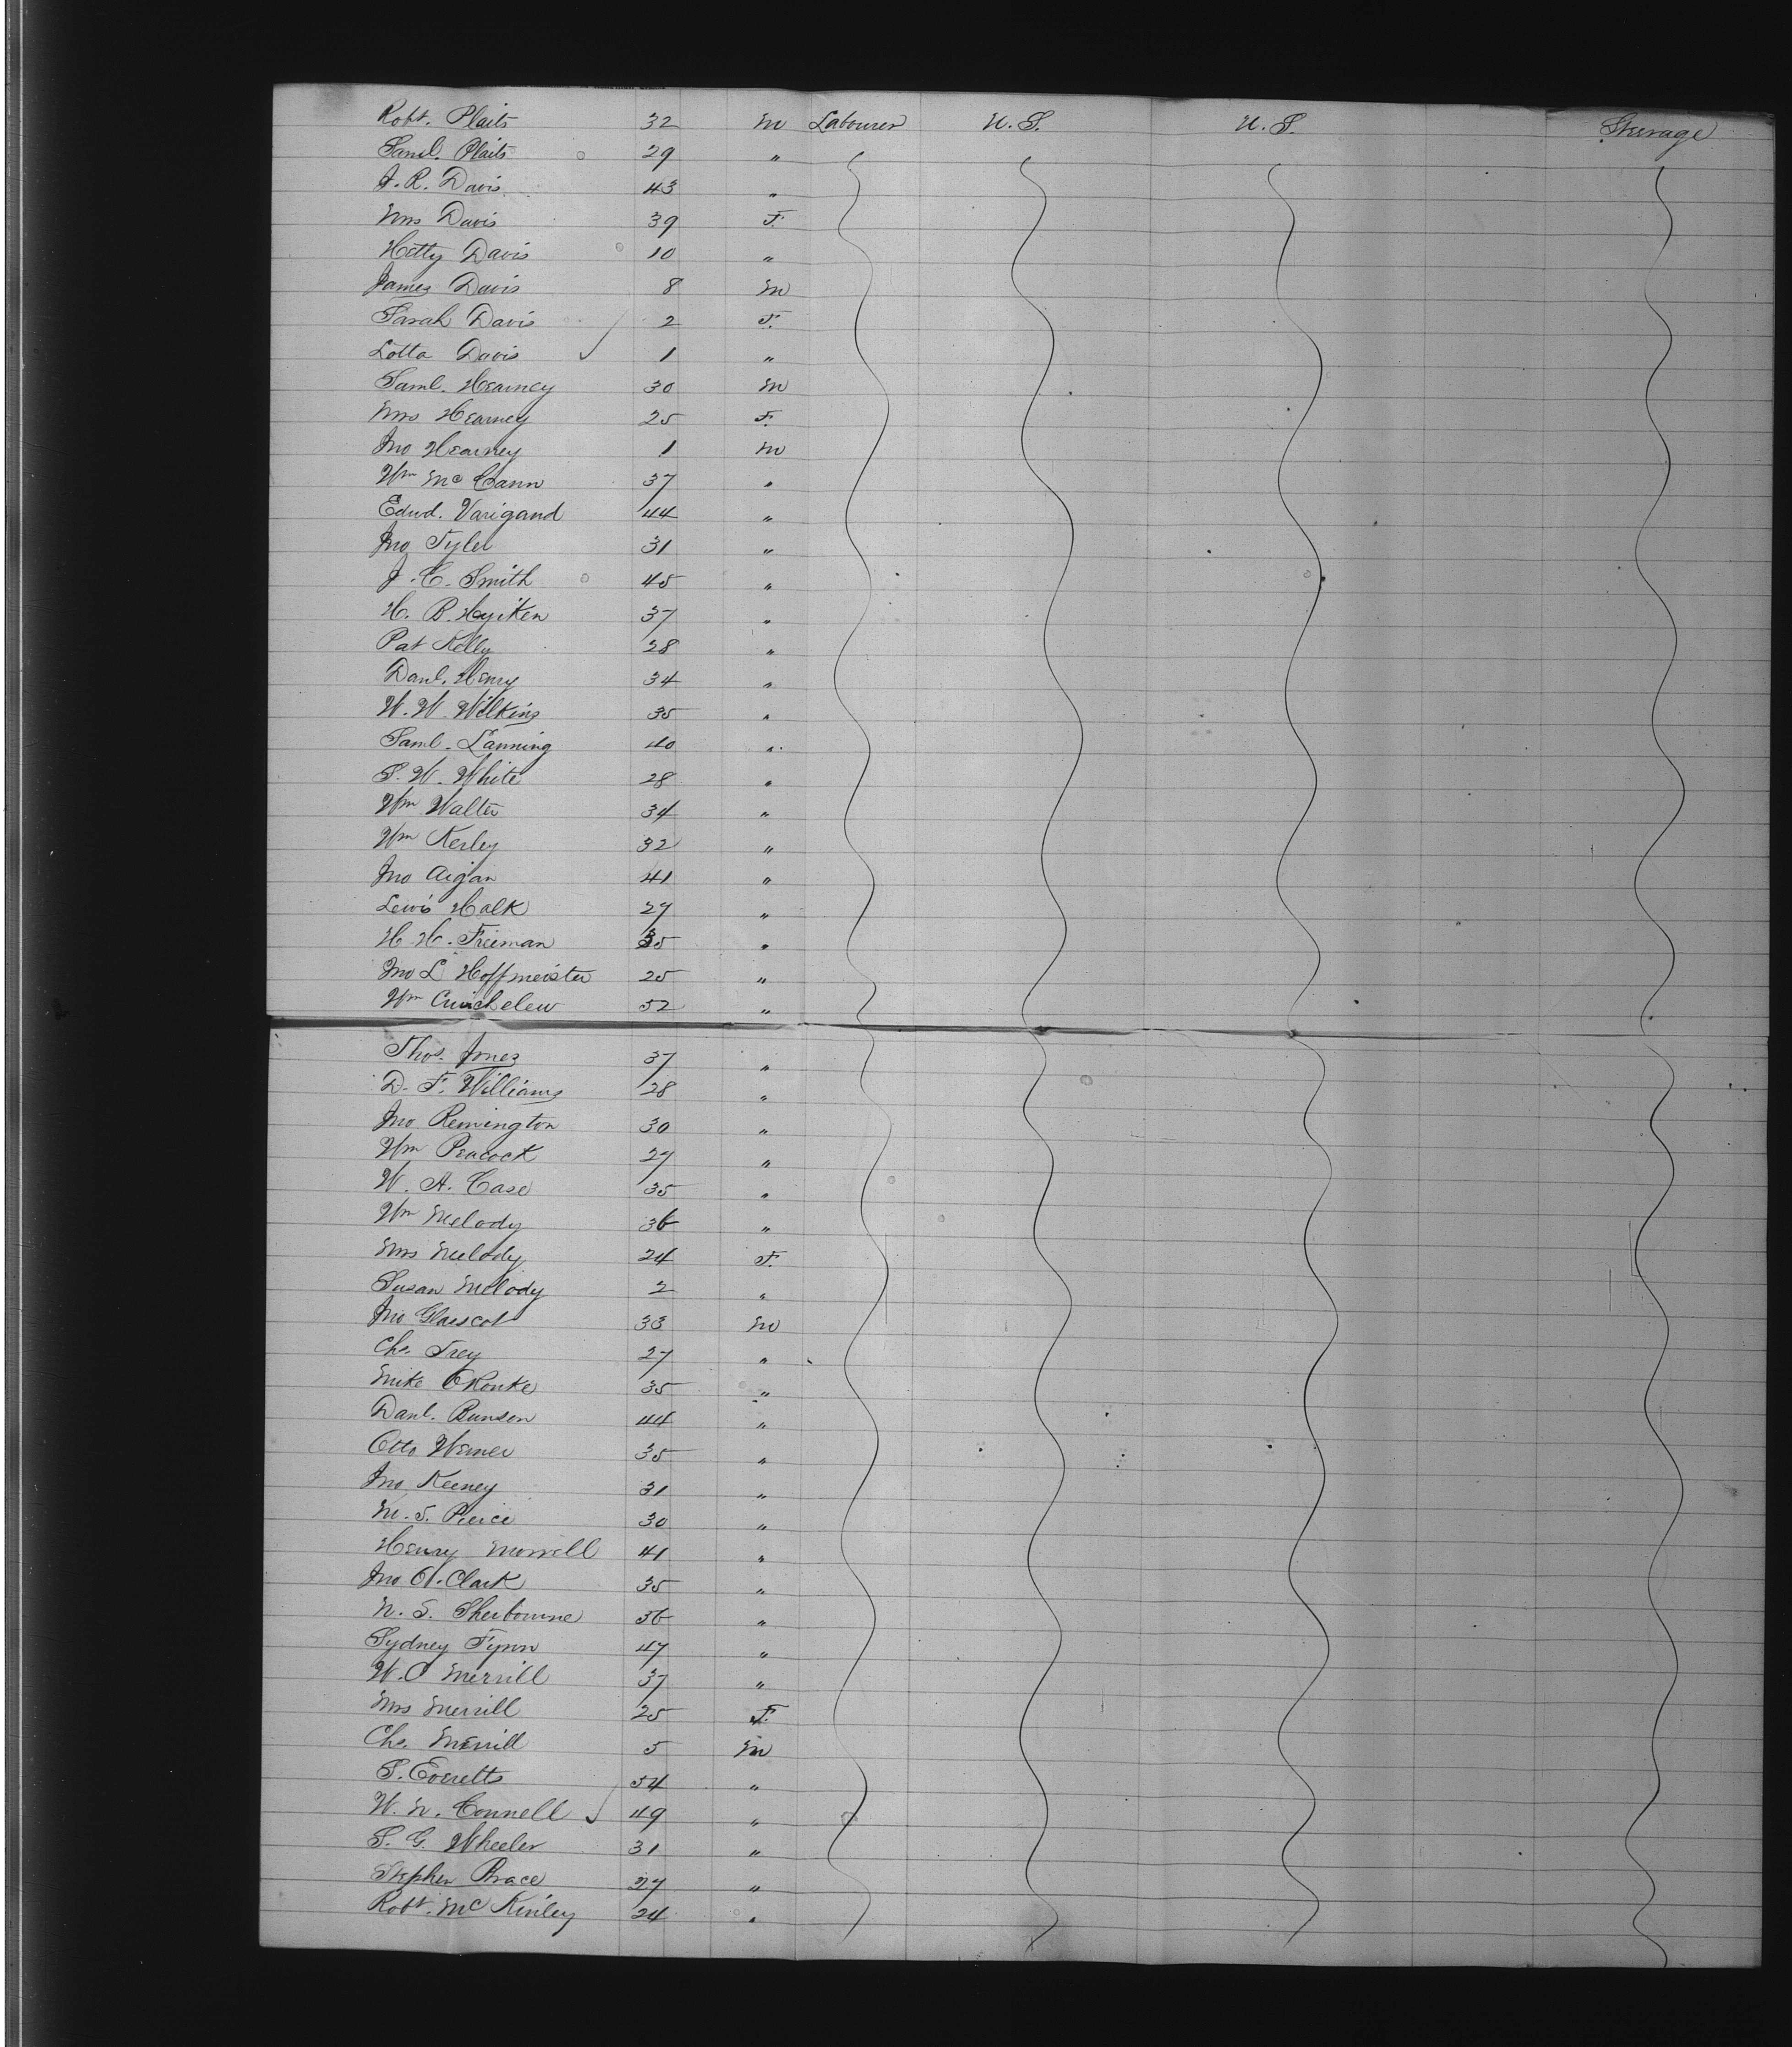 Robt. Plaits 32 M Labourer U.S. U.S. Steerage
Saml. Plaits 29 "
J. R. Davis 43 "
Mrs Davis 39 F.
Hetty Davis 10 "
James Davis 8 M
Sarah Davis 2 F.
Lotta Davis 1 "
Saml. Hearney 30 M
Mrs Hearney 25 F.
Jno Hearney 1 M
Wm McCann 37 "
Edwd. Varigand 44 "
Jno Tyler 31 "
J. C. Smith 45 "
H. B. Heyiken 37 "
Pat Kelly 28 "
Danl. Henry 34 "
W. W. Wilkins 35 "
Saml. Lanning 40 "
S. W. White 28 "
Wm Walter 34 "
Wm Kerley 32 "
Jno Aigan 41 "
Lewis Halk 27 "
H. H. Freeman 35 "
Jno L Hoffmeister 25 "
Wm 52 "
Thos. Jones 37 "
D. F. Williams 28 "
Jno Remington 30 "
Wm Peacock 27 "
W. A. Case 35 "
Wm Melody 36 "
Mrs Melody 24 F.
Susan Melody 2 "
Jno Glascot 33 M
Chs. Frey 27 "
Mike ORouke 35 "
Danl. Bunsen 44 "
Otto Werner 35 "
Jno Keeney 31 "
M. S. Pierce 30 "
Henry Morrell 41 "
Jno A. Clark 35 "
N. S. Sherbourne 56 "
Sydney Flynn 47 "
W. C Merrill 37 "
Mrs Merrill 25 F.
Chs. Merrill 5 M
S. Everetts 54 "
W. N. Connell 49 "
S. G. Wheeler 31 "
Stephen Brace 27 "
Robt. McKinley 24 "